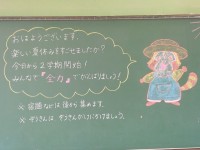 おはようございます。
楽しい夏休みをすごせましたか？
今日から2学期開始！
みんなで『全力』でがんばりましょう！
※宿題などは後から集めます。